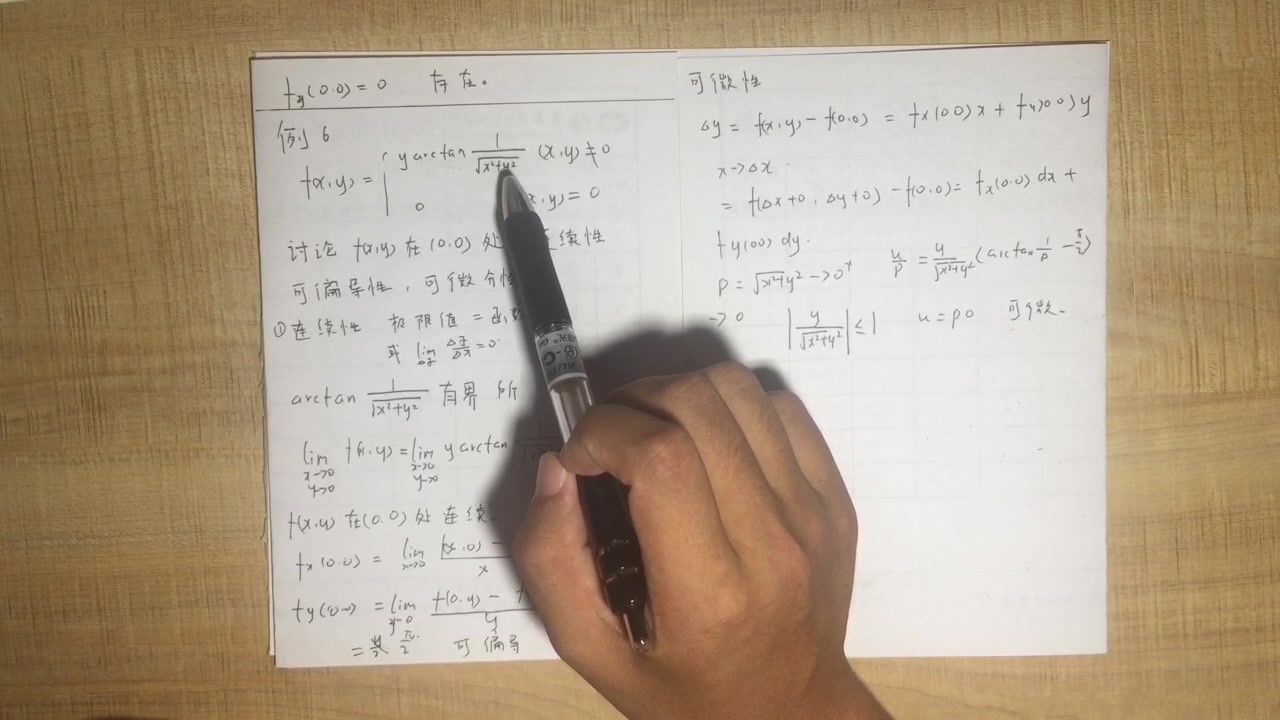 fy(0.0)=0 存在。
例6
f(x,y)= { y arctan 1/√x²+y² (x,y)≠0
0 x,y)=0
讨论 f(x,y)在(0.0)处 连续性
可偏导性,可微分性
①连续性 极限值=函数
或 lim Δz/Δx=0
arctan 1/√x²+y² 有界 所
lim x→0 y→0 f(x,y)=lim x→0 y→0 y arctan 1
f(x,y)在(0.0)处连续
fx(0.0)= lim x→0 f(x,0)- / x
fy(0.0)=lim y→0 f(0.y)- f / y
= π/2 可偏导
可微性
Δy= f(x,y)-f(0.0) = fx(00)x+fy(00)y
x→Δx
= f(Δx+0,Δy+0)-f(0.0)=fx(0.0)dx+
fy(00)dy.
u/ρ = y/√x²+y² (arctan 1/ρ - π/2)
ρ=√x²+y²→0⁺
→0 |y/√x²+y²|≤1 u=ρ0 可微.